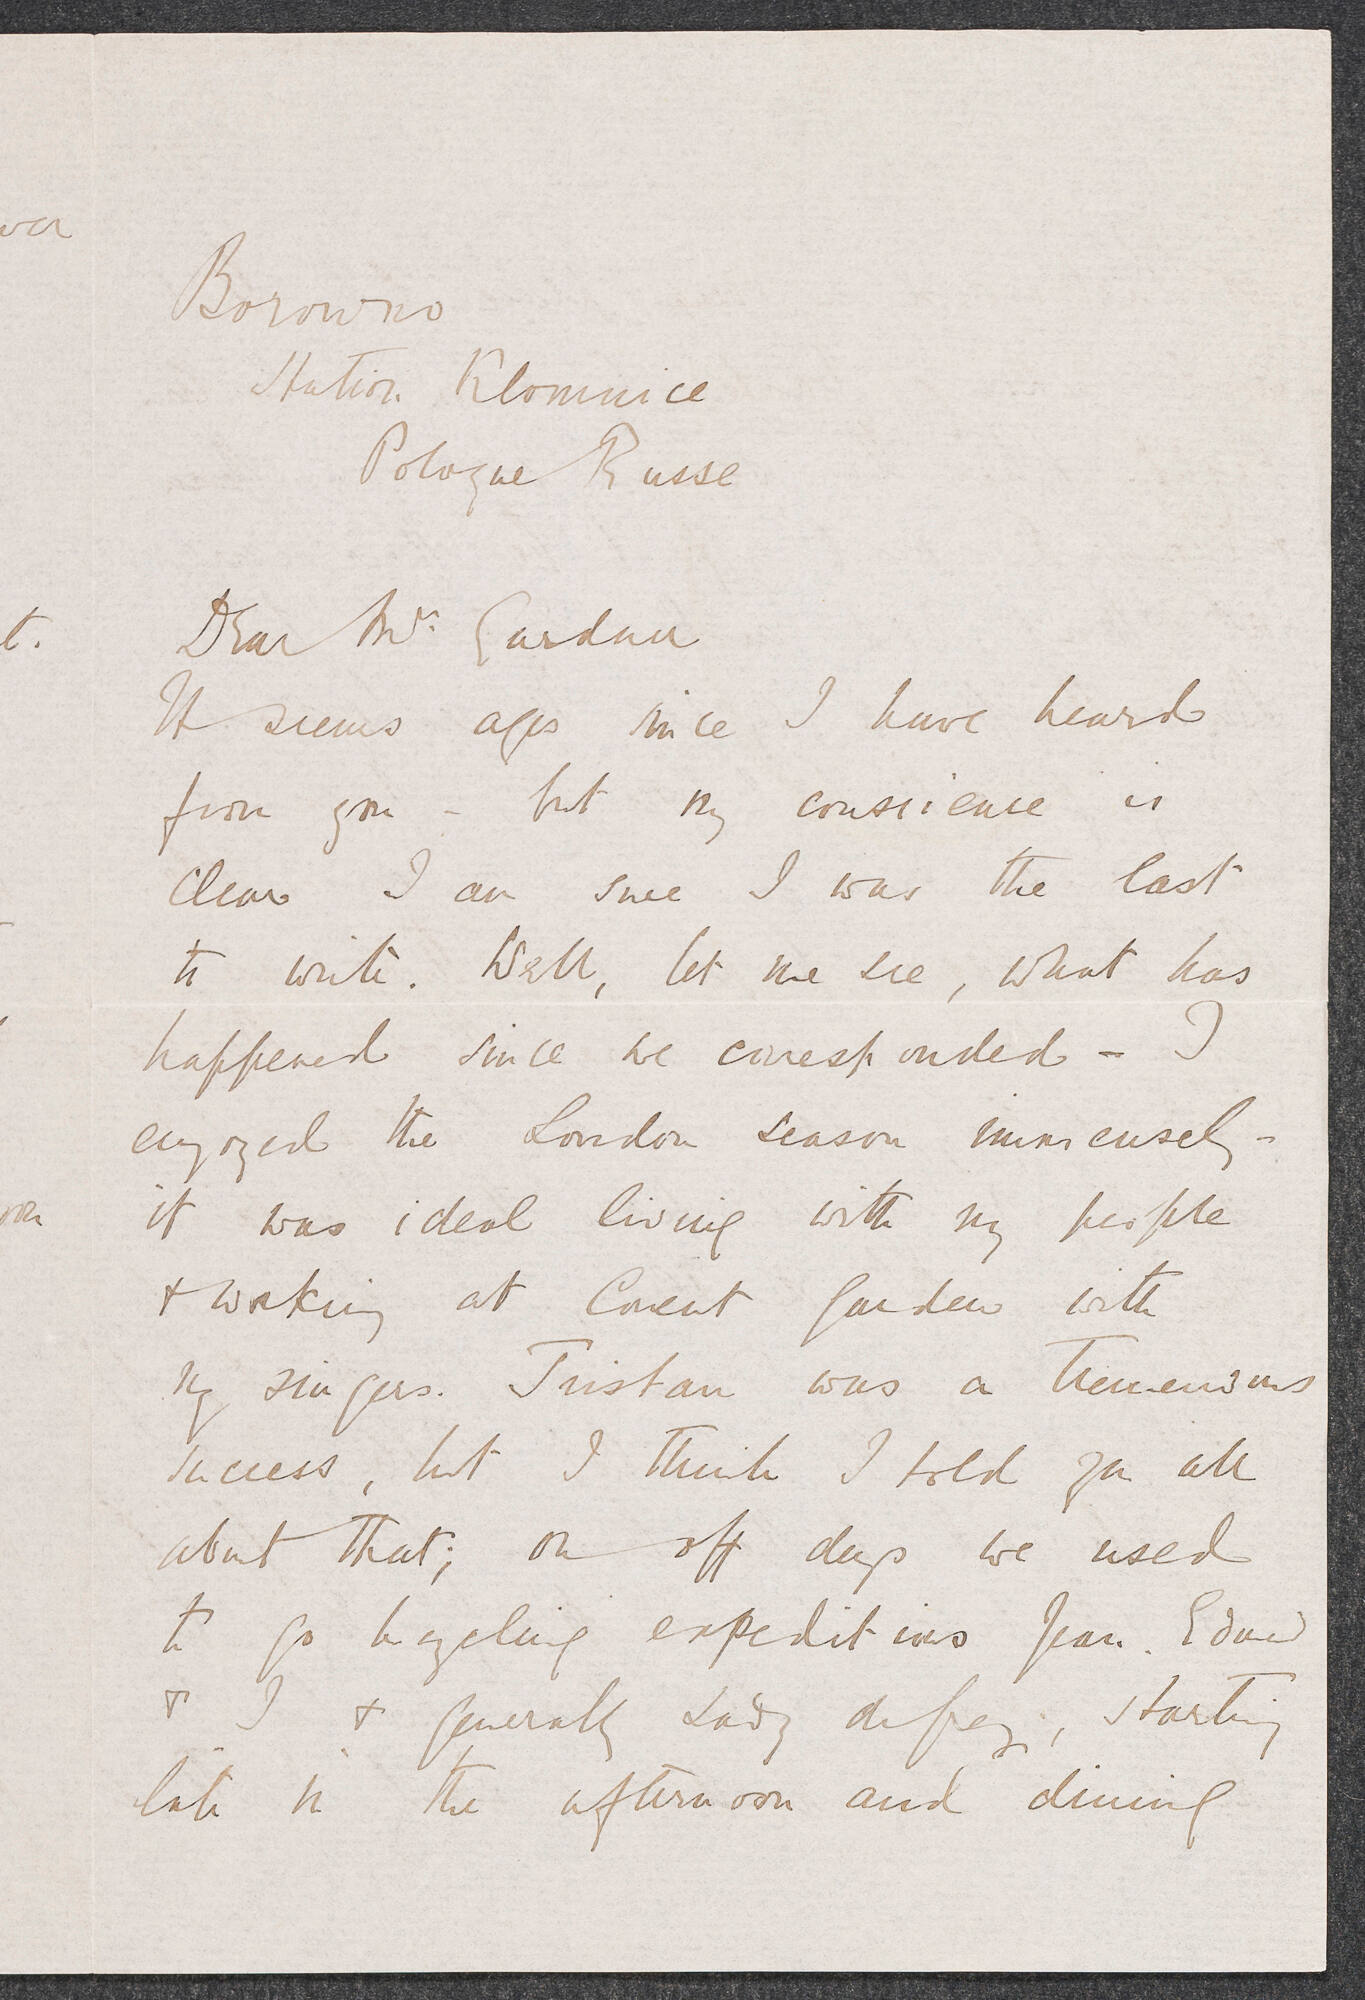 Borowno
Station Klomnice
Pologne Russe
Dear Mrs. Gardner
It seems ages since I have heard
from you - but my conscience is
clear I am sure I was the last
to write. Well, let me see, what has
happened since we corresponded - I
enjoyed the London season immensely -
it was ideal living with my people
& working at Covent Garden with
my singers. Tristan was a tremendous
success, but I think I told you all
about that; on off days we used
to go bicycling expeditions Jean. Edward
& I & generally Lady de Grey, starting
late in the afternoon and dining